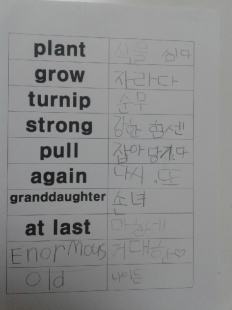 plant 식물 심다
grow 자라다
turnip 순무
strong 강한 힘센
pull 잡아당기다
again 다시, 또
granddaughter 손녀
at last 마침내
Enormous 거대한♡
Old 나이든